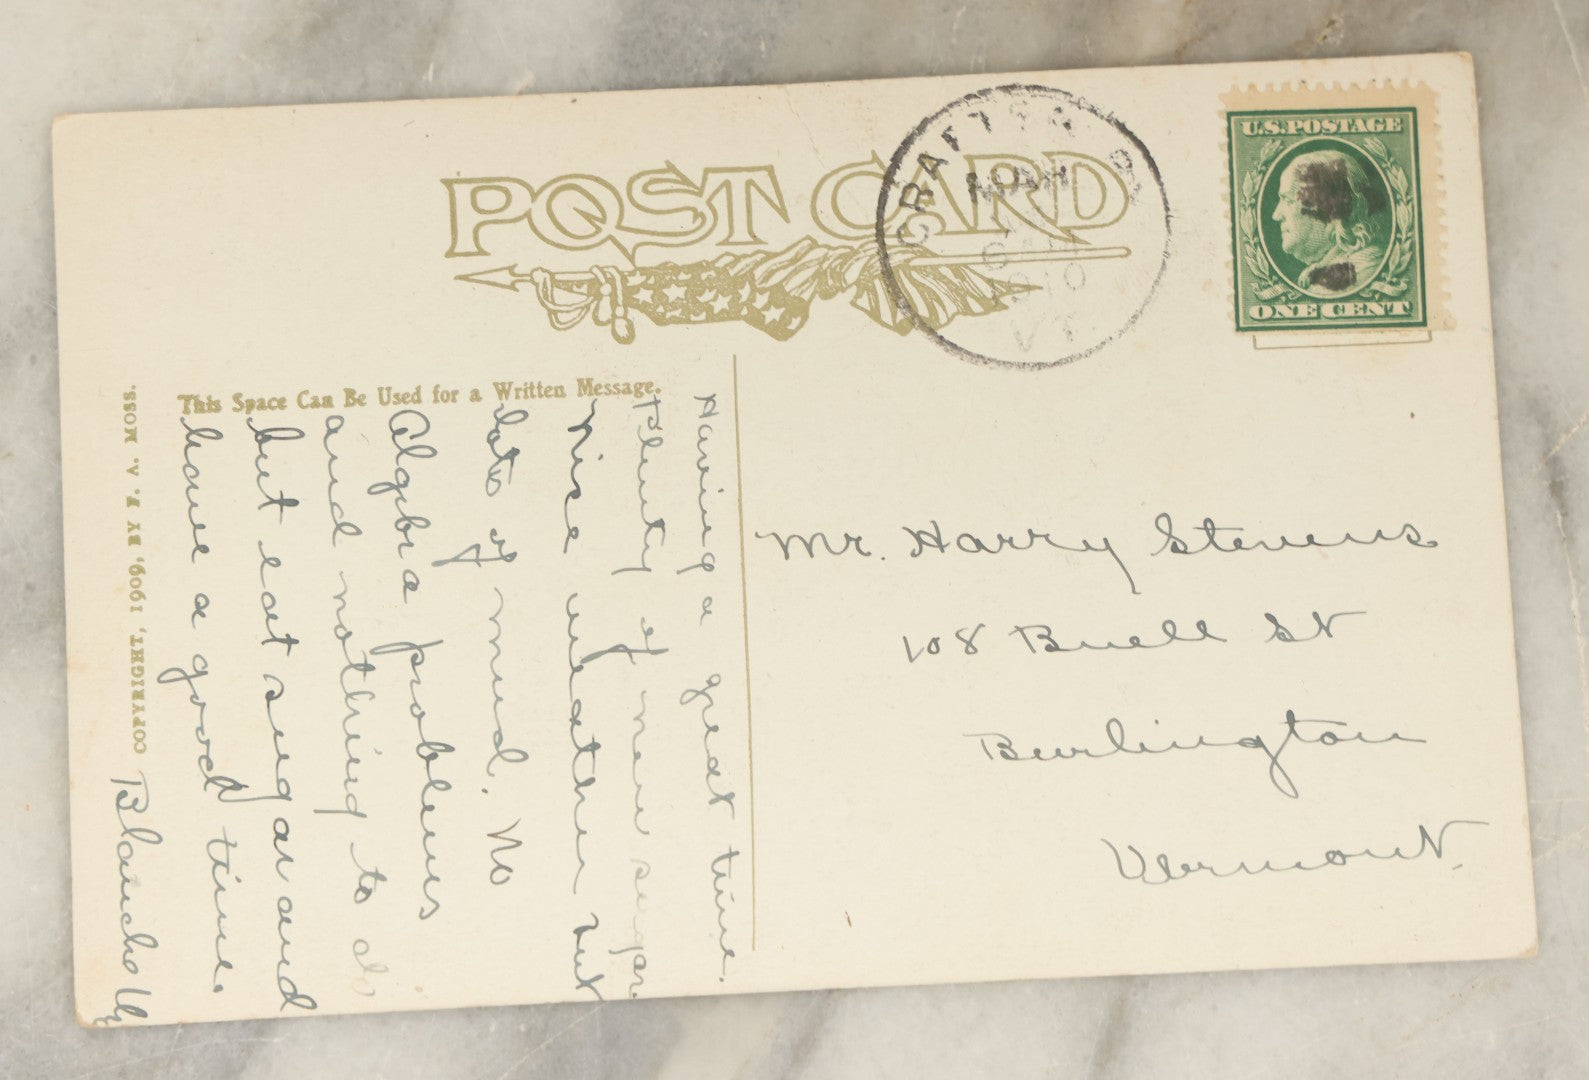 POST CARD
CRAFTSBURY
MAR
6 AM
1910
VT.
U.S. POSTAGE
ONE CENT
This Space Can Be Used for a Written Message.
COPYRIGHT, 1909, BY F. V. MOSS.
Having a great time.
Plenty of new sugar
Nice weather but
lots of mud. No
Algebra problems
and nothing to do
but eat sugar and
have a good time.
Blanche
Mr. Harry Stevens
108 Buell St
Burlington
Vermont.